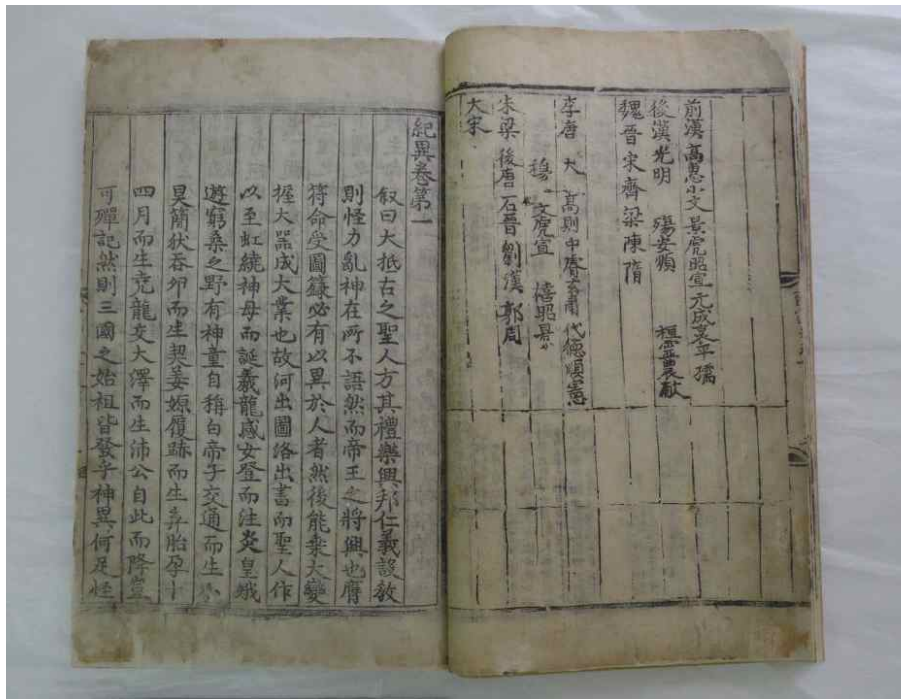 前漢 高惠小文景虎昭宣元成哀平孺
後漢光明 殤安順 桓靈農献
魏晉宋齊梁陳隋
李唐 大 高則中睿玄肅代德順憲
穆 文虎宣 僖昭景
朱梁 後唐 石晉 劉漢 郭周
大宋
紀異卷第一
叙曰大抵古之聖人方其禮樂興邦仁義設敎
則怪力亂神在所不語然而帝王之將興也膺
符命受圖籙必有以異於人者然後能乘大變
握大器成大業也故河出圖洛出書而聖人作
以至虹繞神母而誕羲龍感女登而注炎皇娥
遊窮桑之野有神童自稱白帝子交通而生小
昊簡狄吞卵而生契姜嫄履跡而生弃胎孕十
四月而生堯龍交大澤而生沛公自此而降豈
可殫記然則三國之始祖皆發乎神異何足怪